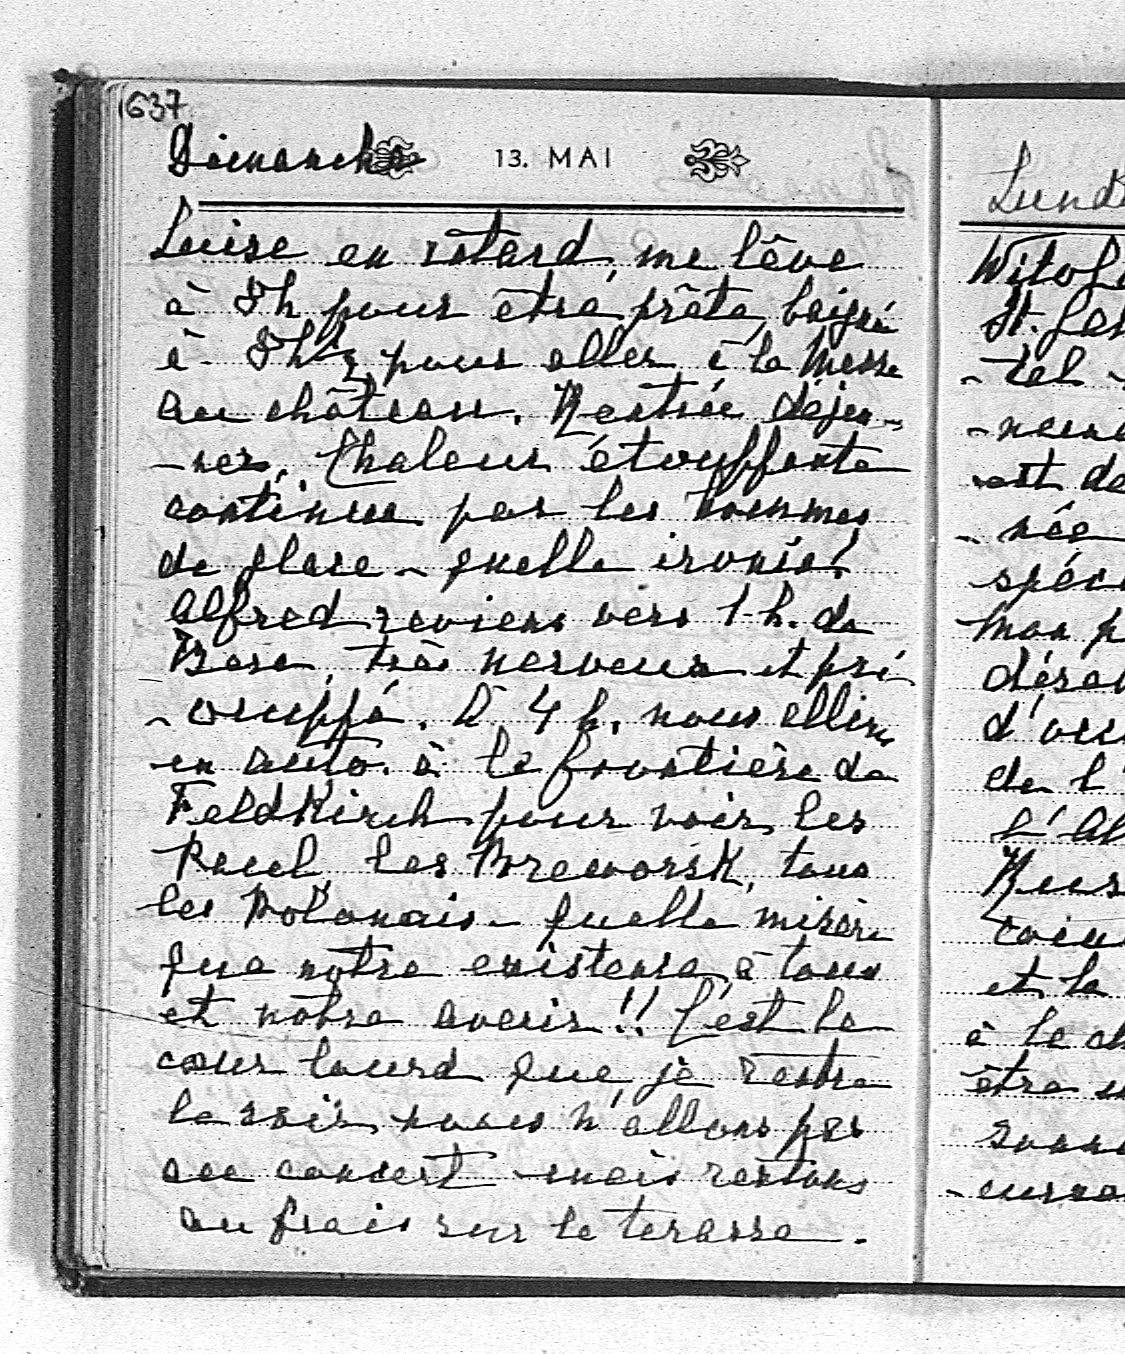 1637
Dimanche 13. MAI
Luise en retard, me lève
à 8h pour être prête, baigné
à 8h½ pour aller à la Messe
au château. Rentrée déjeu-
-ner. Chaleur étouffante
continue par les hommes
de glace - quelle ironie!
Alfred reviens vers 1 h. de
très nerveux et pré-
-occuppé. À 4 h. nous allons
en auto. à la frontière de
Feldkirch pour voir les
les tous
les Polonais - quelle misère
que notre existence à tous
et notre avenir!! C'est le
cœur lourd que je rentre
le soir nous n'allons pas
au concert mais restons
au frais sur la terasse.
Lund
Witol
St.
- tel
-
est de
- née
spéc
Mon p
désa
d'
de l'
l'Al

et la
à la ch
être